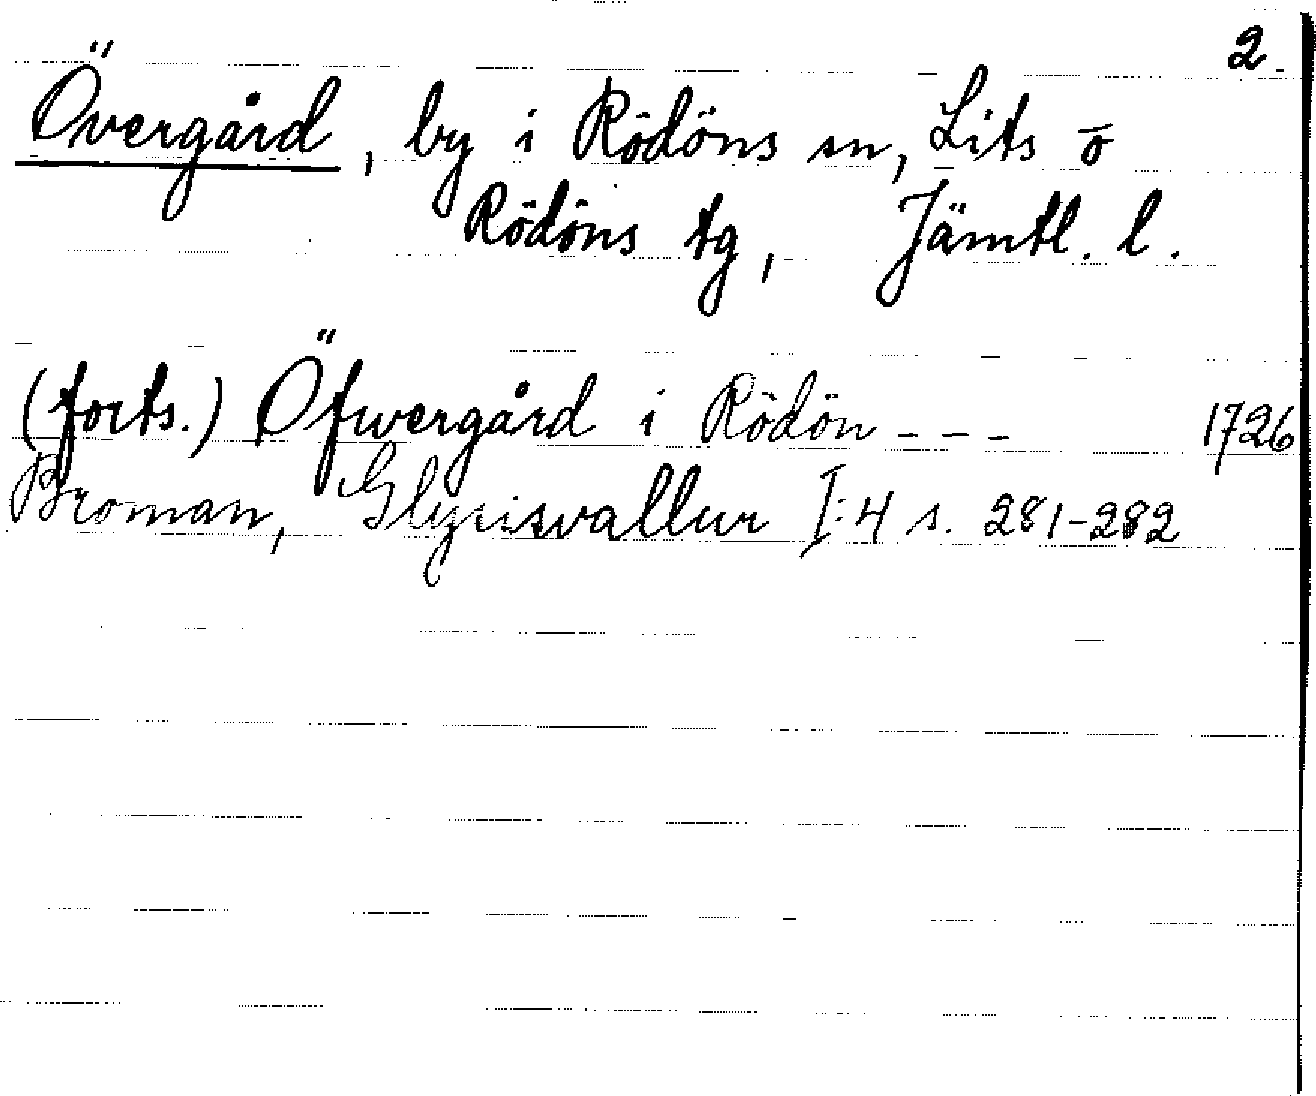 2.
Övergård, by i Rödöns sn, Lits o
Rödöns tg, Jämtl. l.
(forts.) Öfwergård i Rödön - - - 1726
Broman, Glysisvallur I:4 s. 281-282